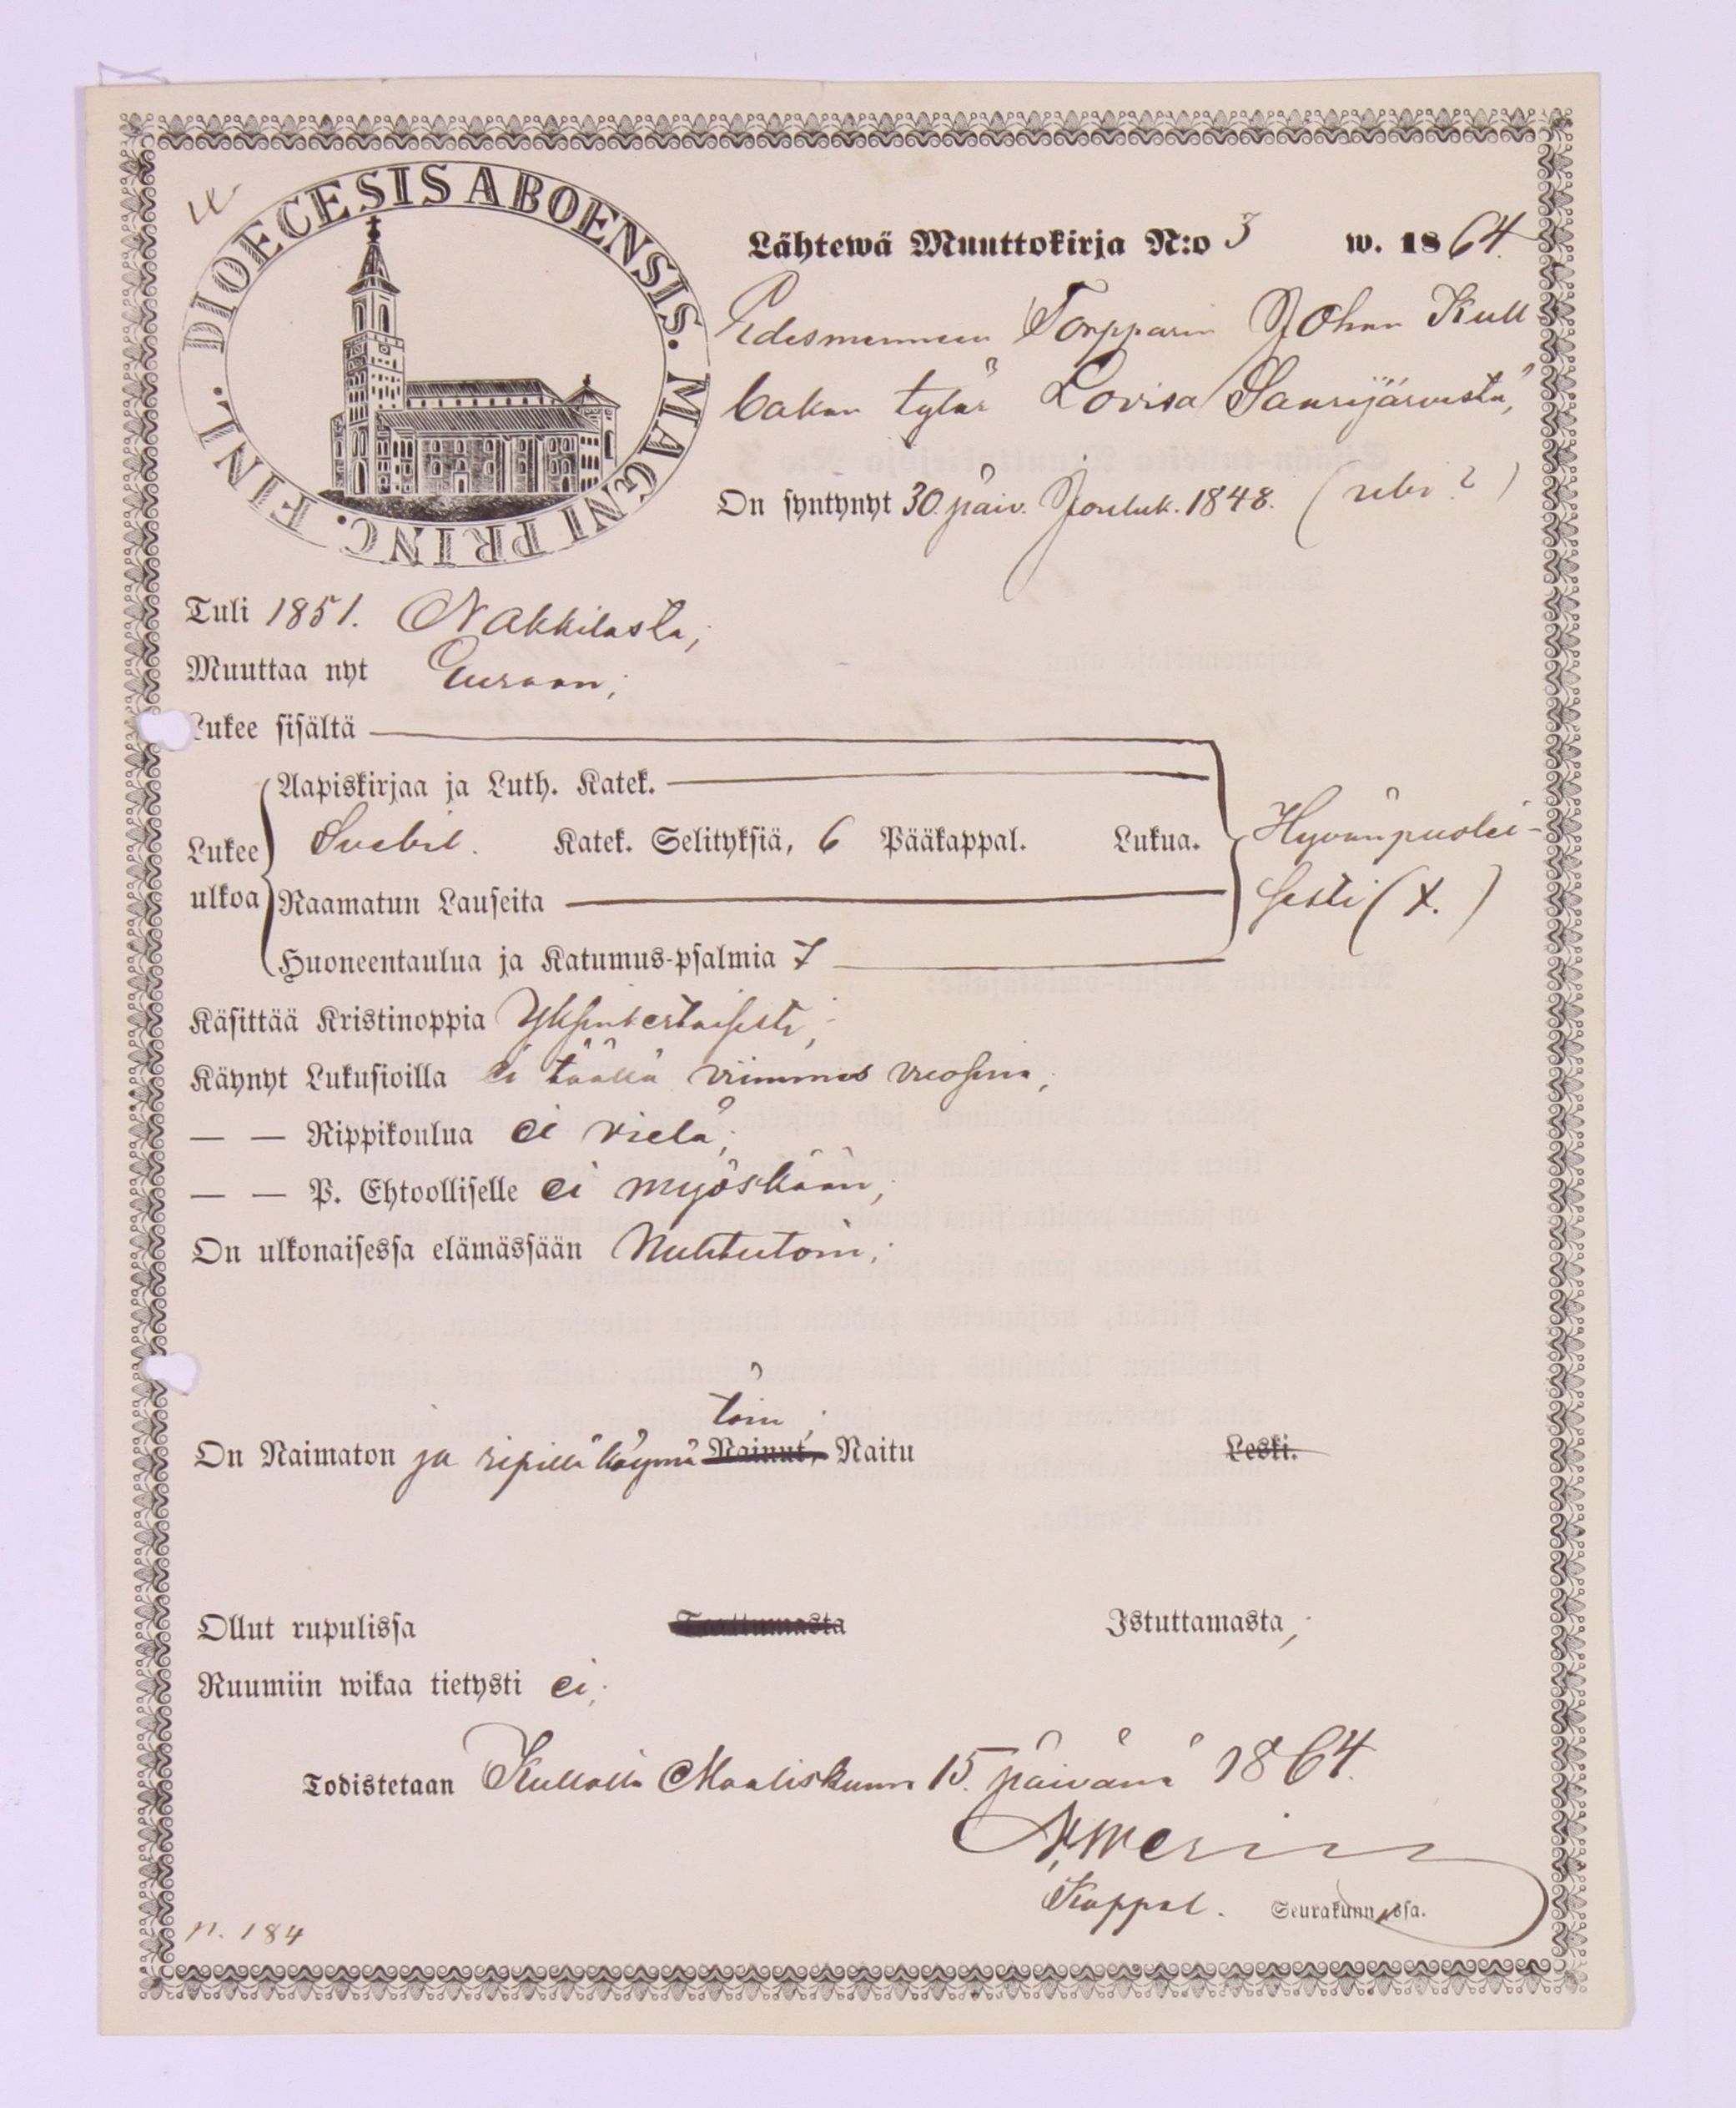 DIOECESIS ABOENSIS. MAGNI PRINC. FINL.
Lähtewä Muuttokirja N:o 3 w. 1864.
Edesmenneen Torpparin Johan Kull
bakan tytär Lovisa Saarijärvestä,
On syntynyt 30. päiv. Jouluk. 1848.
Tuli 1851. Nakkilasta,
Muuttaa nyt Euraan;
Lukee sisältä
Aapiskirjaa ja Luth. Katek.
Lukee ulkoa
Svebil. Katek. Selityksiä, 6 Pääkappal. Lukua.
Hyvänpuolei-
sesti (x.)
Raamatun Lauseita
Huoneentaulua ja Katumus-psalmia 7
Käsittää Kristinoppia Yksinkertaisesti;
Käynyt Lukusioilla ei täällä viimmes vuosina,
— — Rippikoulua ei vielä;
— — P. Ehtoolliselle ei myöskään,
On ulkonaisessa elämässään Nuhteetoin;
töin;
On Naimaton ja ripillä käymä Nainut, Naitu Leski.
Ollut rupulissa Taattumasta Istuttamasta,
Ruumiin wikaa tietysti ei;
Todistetaan Kullalla Maaliskuun 15. päivänä 1864.
Kappal. Seurakunnassa.
n. 184